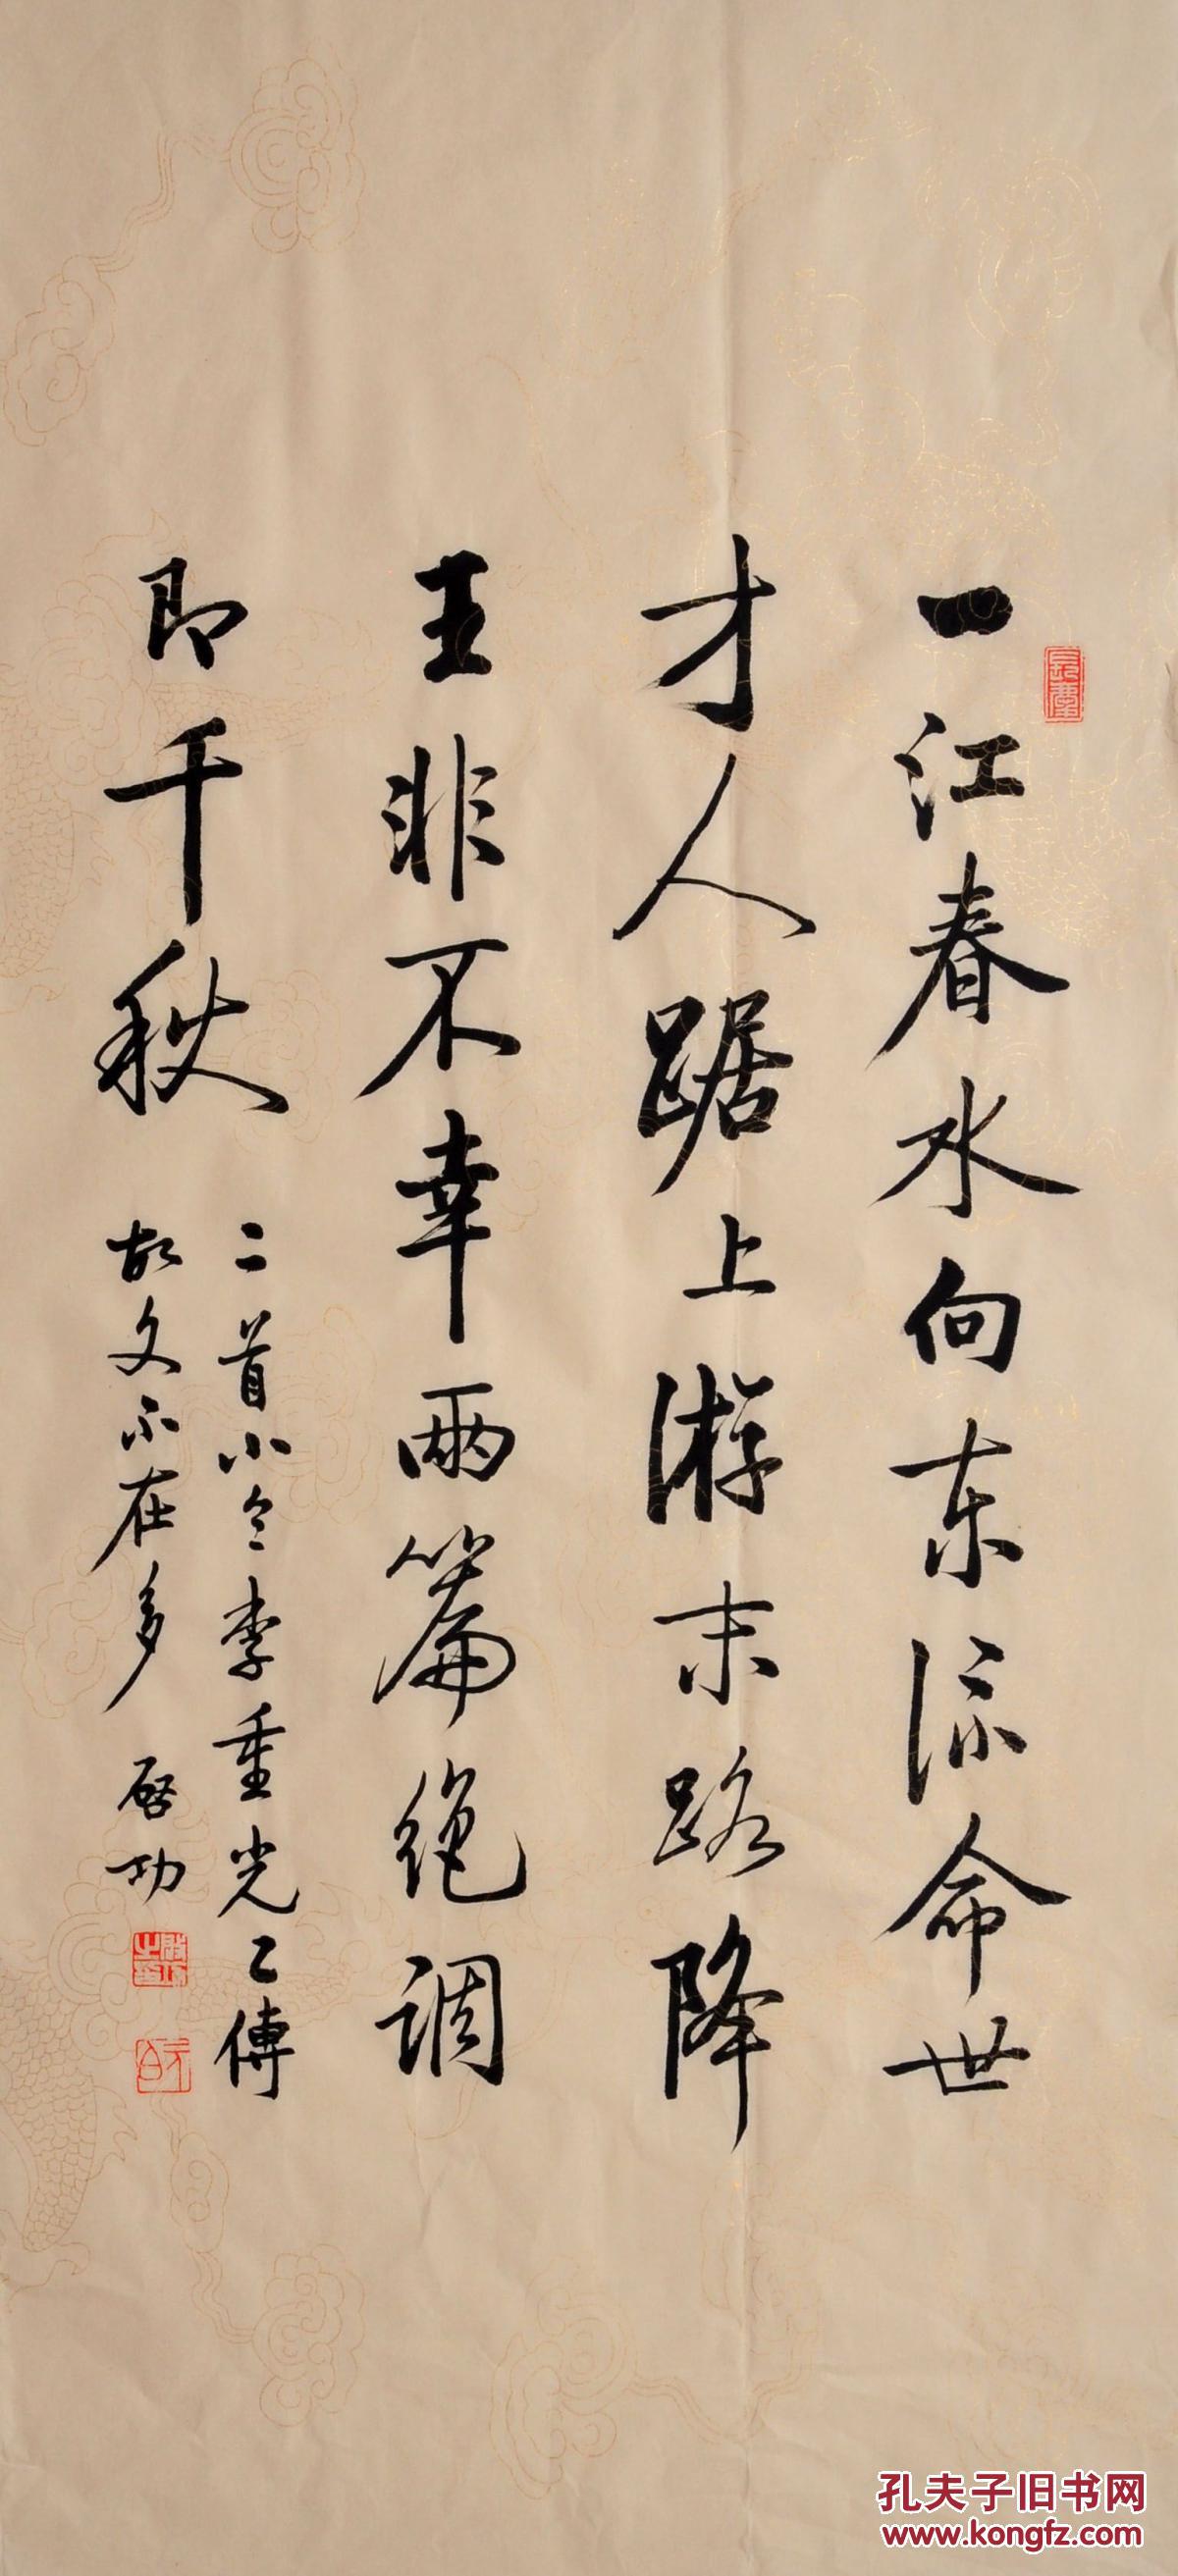 一江春水向东流命世
才人踞上游末路降
王非不幸两篇绝调
即千秋
二首小令李重光已传
故文不在多
启功
孔夫子旧书网
www.kongfz.com